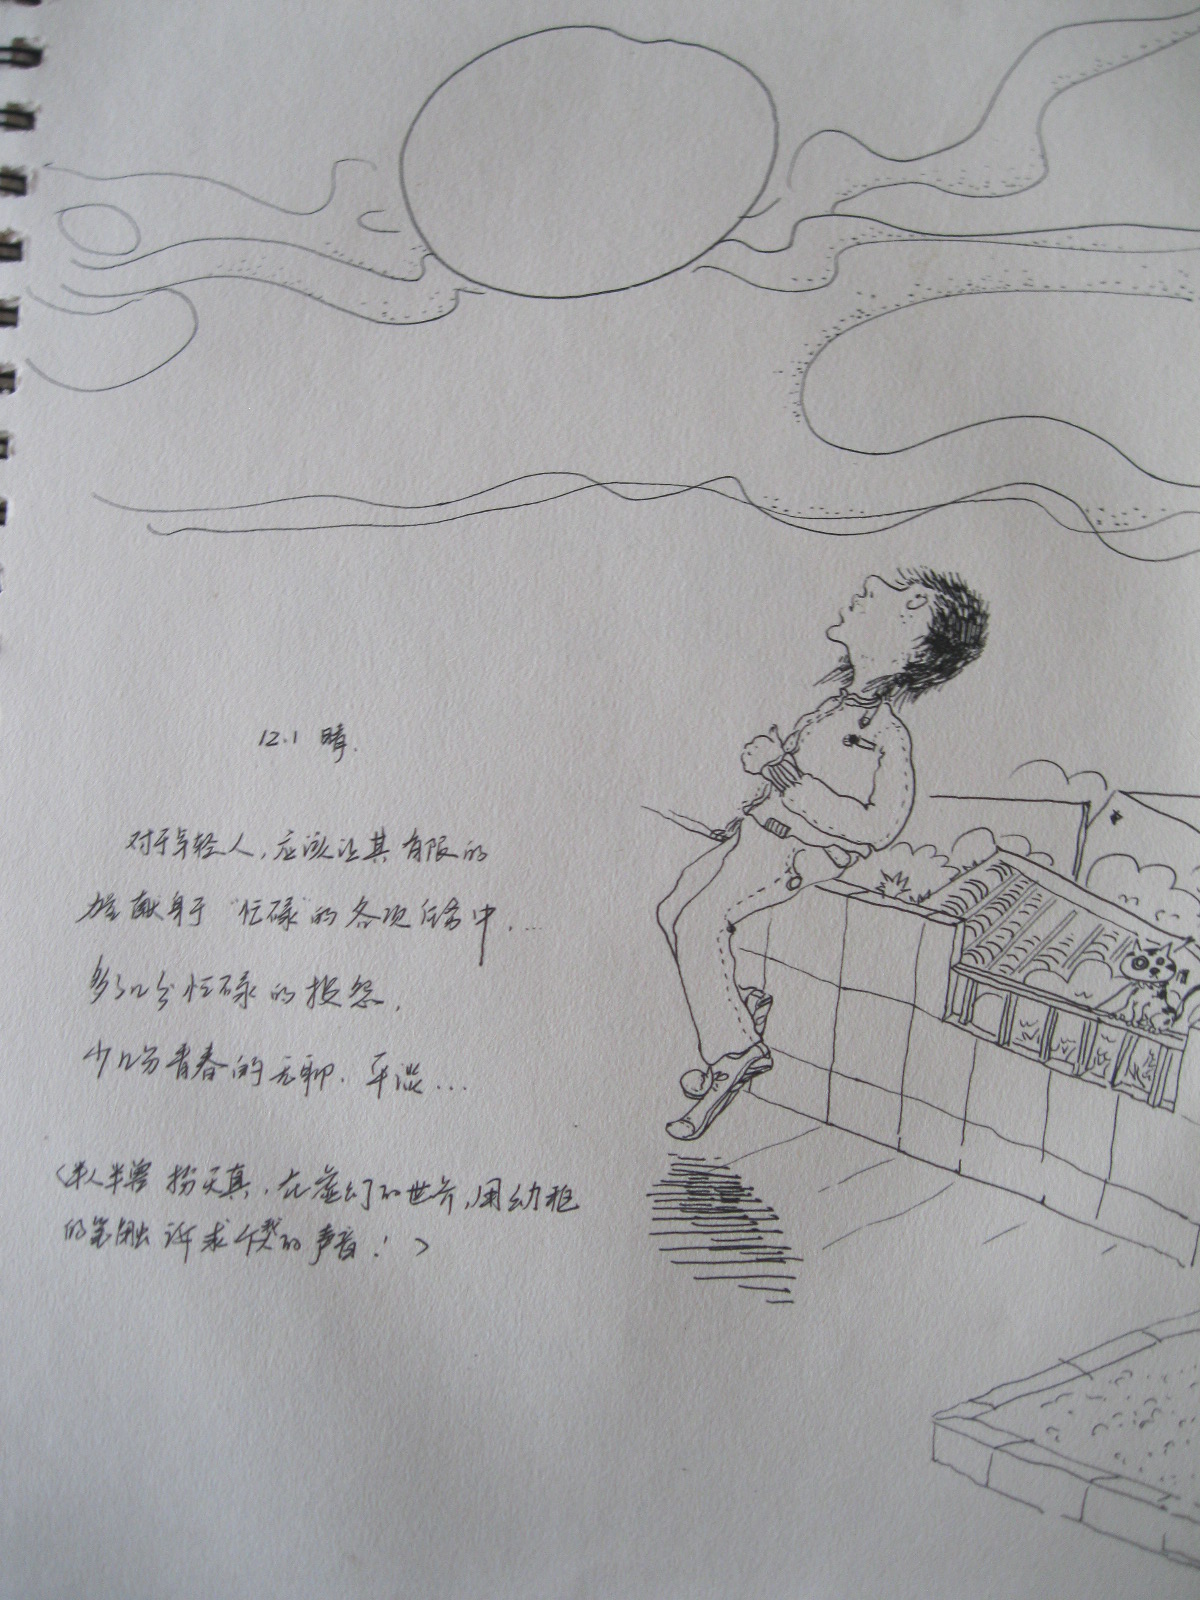 12.1 晴.
对于年轻人,应该让其有限的
献身于"忙碌"的各项任务中.…
多几分忙碌的抱怨,
少几份青春的无聊.平淡…
(半人半兽 扮天真.在虚幻的世界,用幼稚
的笔触诉求 的声音!)